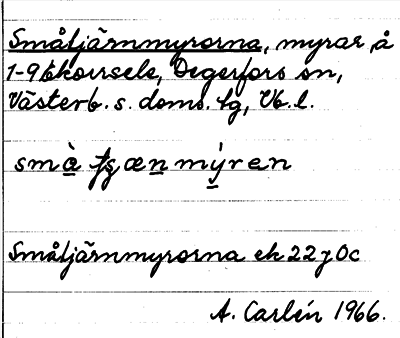 Småtjärnmyrorna, myrar, å
1-9 Ekorrsele, Degerfors sn,
Västerb. s. doms. tg, Vb. l.
Småtjärnmyrorna ek 22 j 0c
A. Carlén 1966.